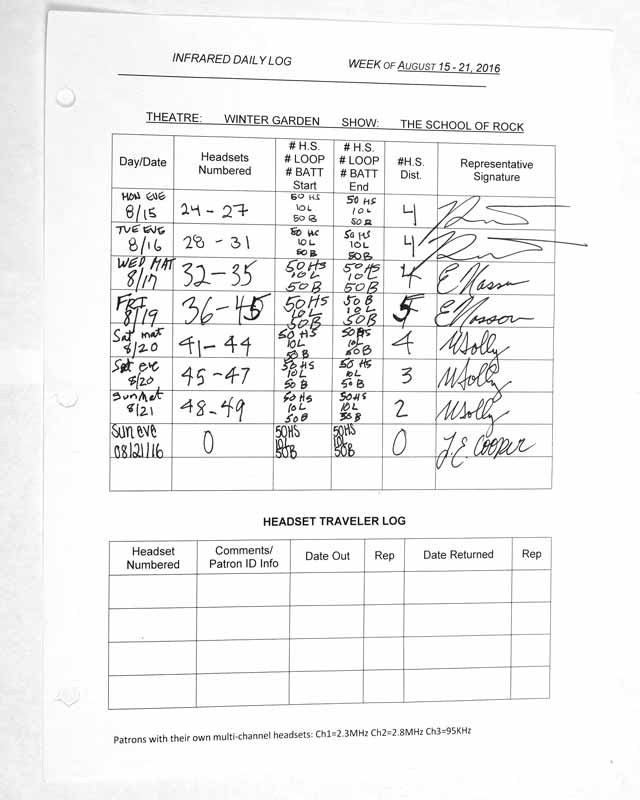 INFRARED DAILY LOG WEEK OF AUGUST 15 - 21, 2016
THEATRE: WINTER GARDEN SHOW: THE SCHOOL OF ROCK
Day/Date Headsets Numbered # H.S. # LOOP # BATT Start # H.S. # LOOP # BATT End #H.S. Dist. Representative Signature
MON EVE 8/15 24 - 27 50 HS 10 L 50 B 50 HS 10 L 50 B 4
TUE EVE 8/16 28 - 31 50 HS 10L 50 B 50 HS 10L 50B 4
WED MAT 8/17 32-35 50HS 10L 50B 50HS 10L 50B 4 E Nasson
FRI 8/19 36-45 50HS 10L 50B 50 B 10L 50B 5 E Nasson
Sat mat 8/20 41-44 50HS 10L 50B 50HS 10L 50B 4 WSolly
Sat eve 8/20 45-47 50HS 10L 50B 50HS 10L 50B 3 WSolly
Sun Mat 8/21 48-49 50HS 10L 50B 50HS 10L 50B 2 WSolly
Sun eve 08/21/16 0 50HS 10L 50B 50HS 10L 50B 0 J.E. Cooper
HEADSET TRAVELER LOG
Headset Numbered Comments/ Patron ID Info Date Out Rep Date Returned Rep
Patrons with their own multi-channel headsets: Ch1=2.3MHz Ch2=2.8MHz Ch3=95KHz